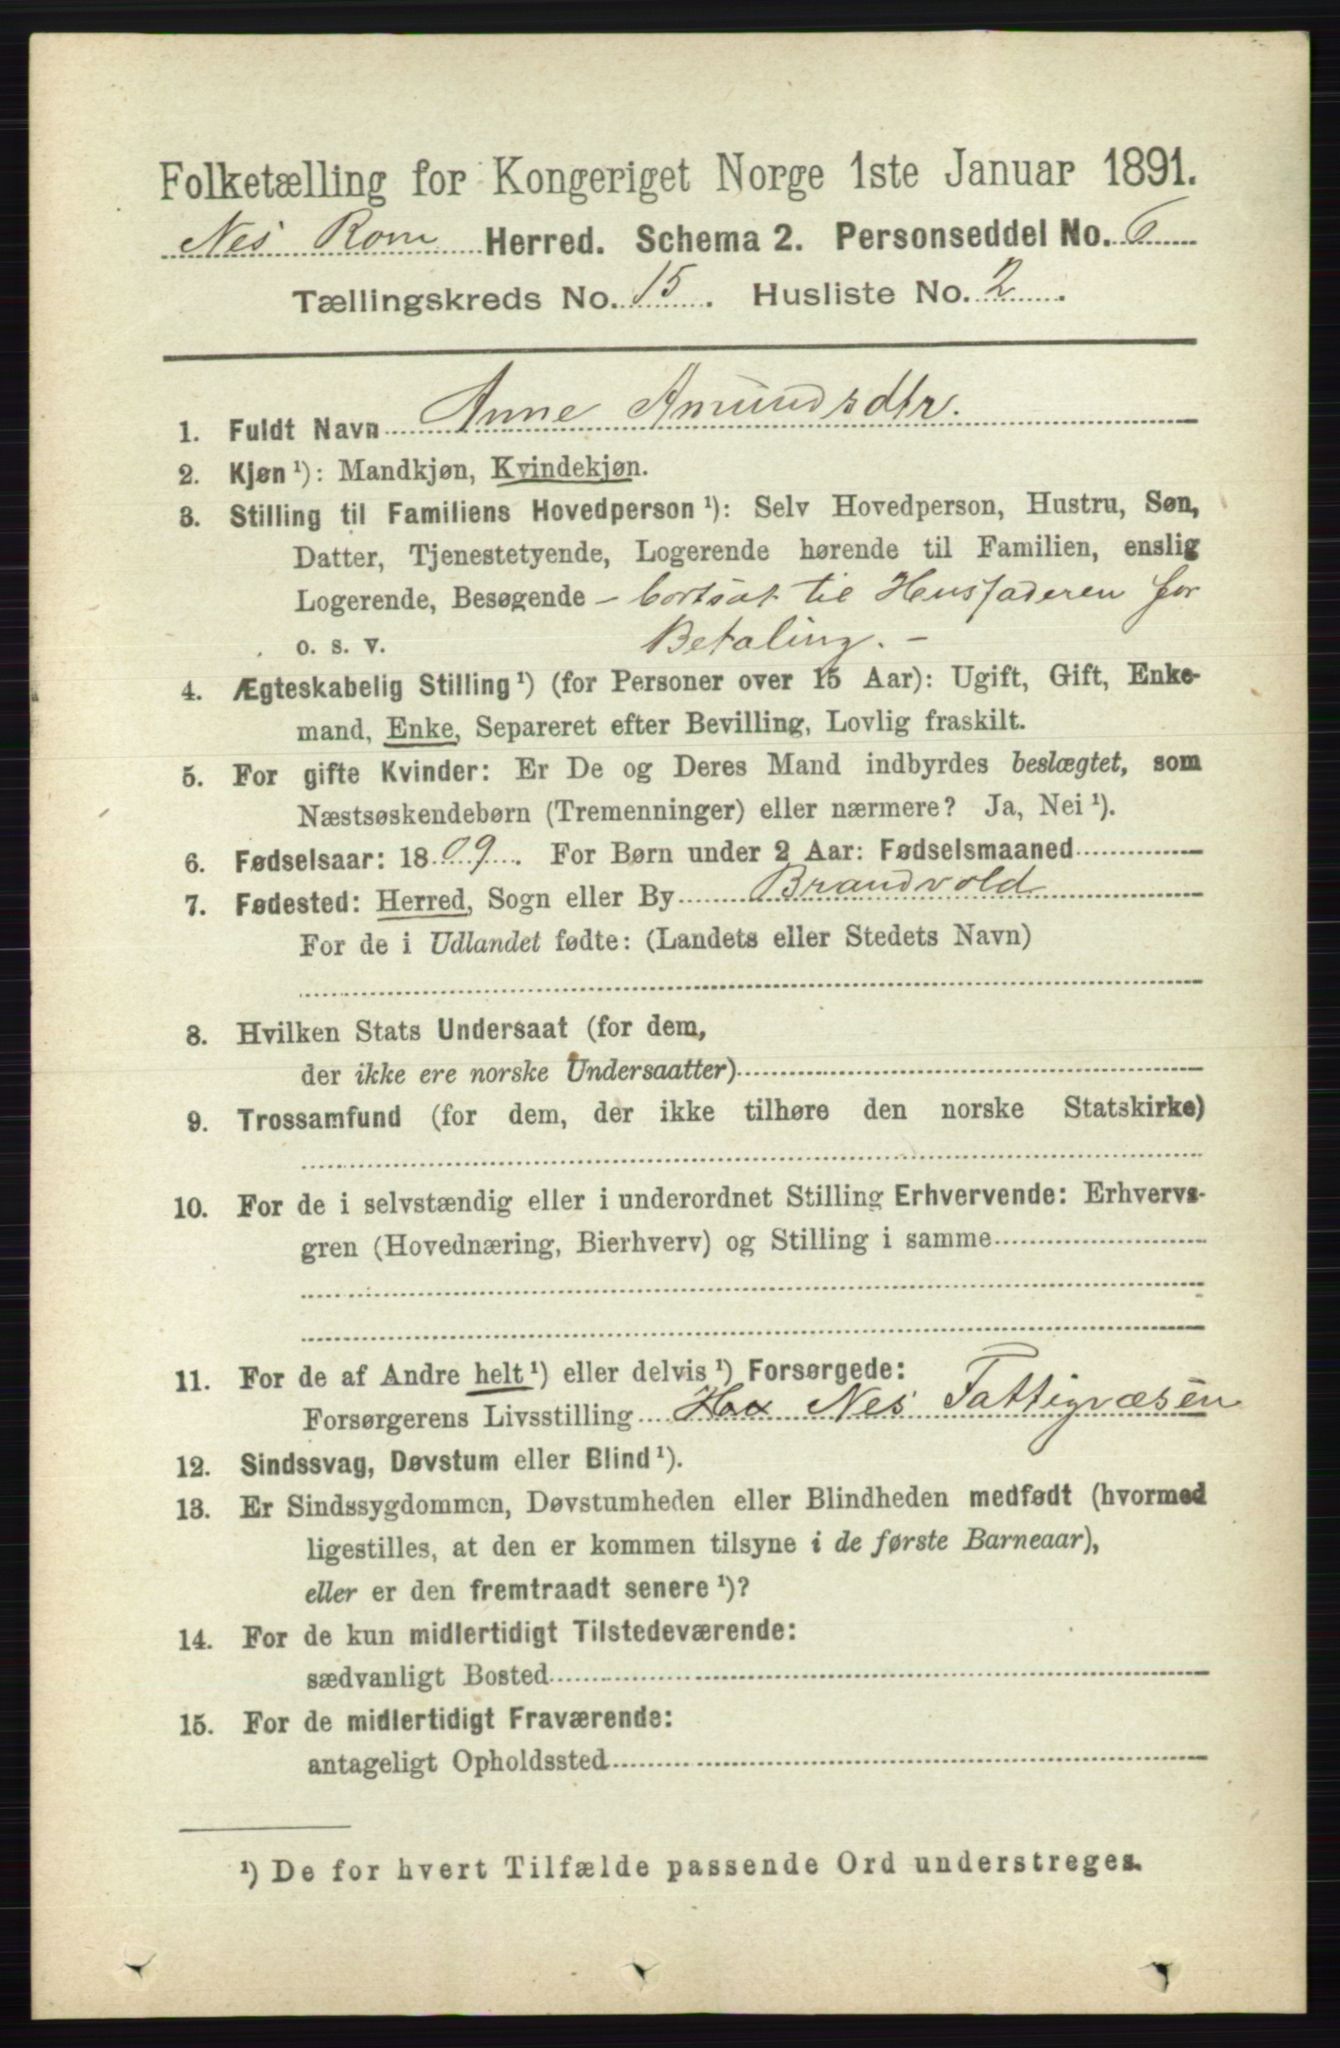 Folketælling for Kongeriget Norge 1ste Januar 1891.
Nes Rom Herred. Schema 2. Personseddel No. 6
Tællingskreds No. 15. Husliste No. 2.
1. Fuldt Navn Anne Amundsdtr.
2. Kjøn ¹): Mandkjøn, Kvindekjøn.
3. Stilling til Familiens Hovedperson ¹): Selv Hovedperson, Hustru, Søn,
Datter, Tjenestetyende, Logerende hørende til Familien, enslig
Logerende, Besøgende – bortsat til Husfaderen for
o. s. v. Betaling. –
4. Ægteskabelig Stilling ¹) (for Personer over 15 Aar): Ugift, Gift, Enke-
mand, Enke, Separeret efter Bevilling, Lovlig fraskilt.
5. For gifte Kvinder: Er De og Deres Mand indbyrdes beslægtet, som
Næstsøskendebørn (Tremenninger) eller nærmere? Ja, Nei ¹).
6. Fødselsaar: 1809. For Børn under 2 Aar: Fødselsmaaned
7. Fødested: Herred, Sogn eller By Brandvold
For de i Udlandet fødte: (Landets eller Stedets Navn)
8. Hvilken Stats Undersaat (for dem,
der ikke ere norske Undersaatter)
9. Trossamfund (for dem, der ikke tilhøre den norske Statskirke)
10. For de i selvstændig eller i underordnet Stilling Erhvervende: Erhvervs-
gren (Hovednæring, Bierhverv) og Stilling i samme
11. For de af Andre helt ¹) eller delvis ¹) Forsørgede:
Forsørgerens Livsstilling Nes Fattigvæsen
12. Sindssvag, Døvstum eller Blind ¹).
13. Er Sindssygdommen, Døvstumheden eller Blindheden medfødt (hvormed
ligestilles, at den er kommen tilsyne i de første Barneaar),
eller er den fremtraadt senere ¹)?
14. For de kun midlertidigt Tilstedeværende:
sædvanligt Bosted
15. For de midlertidigt Fraværende:
antageligt Opholdssted
¹) De for hvert Tilfælde passende Ord understreges.